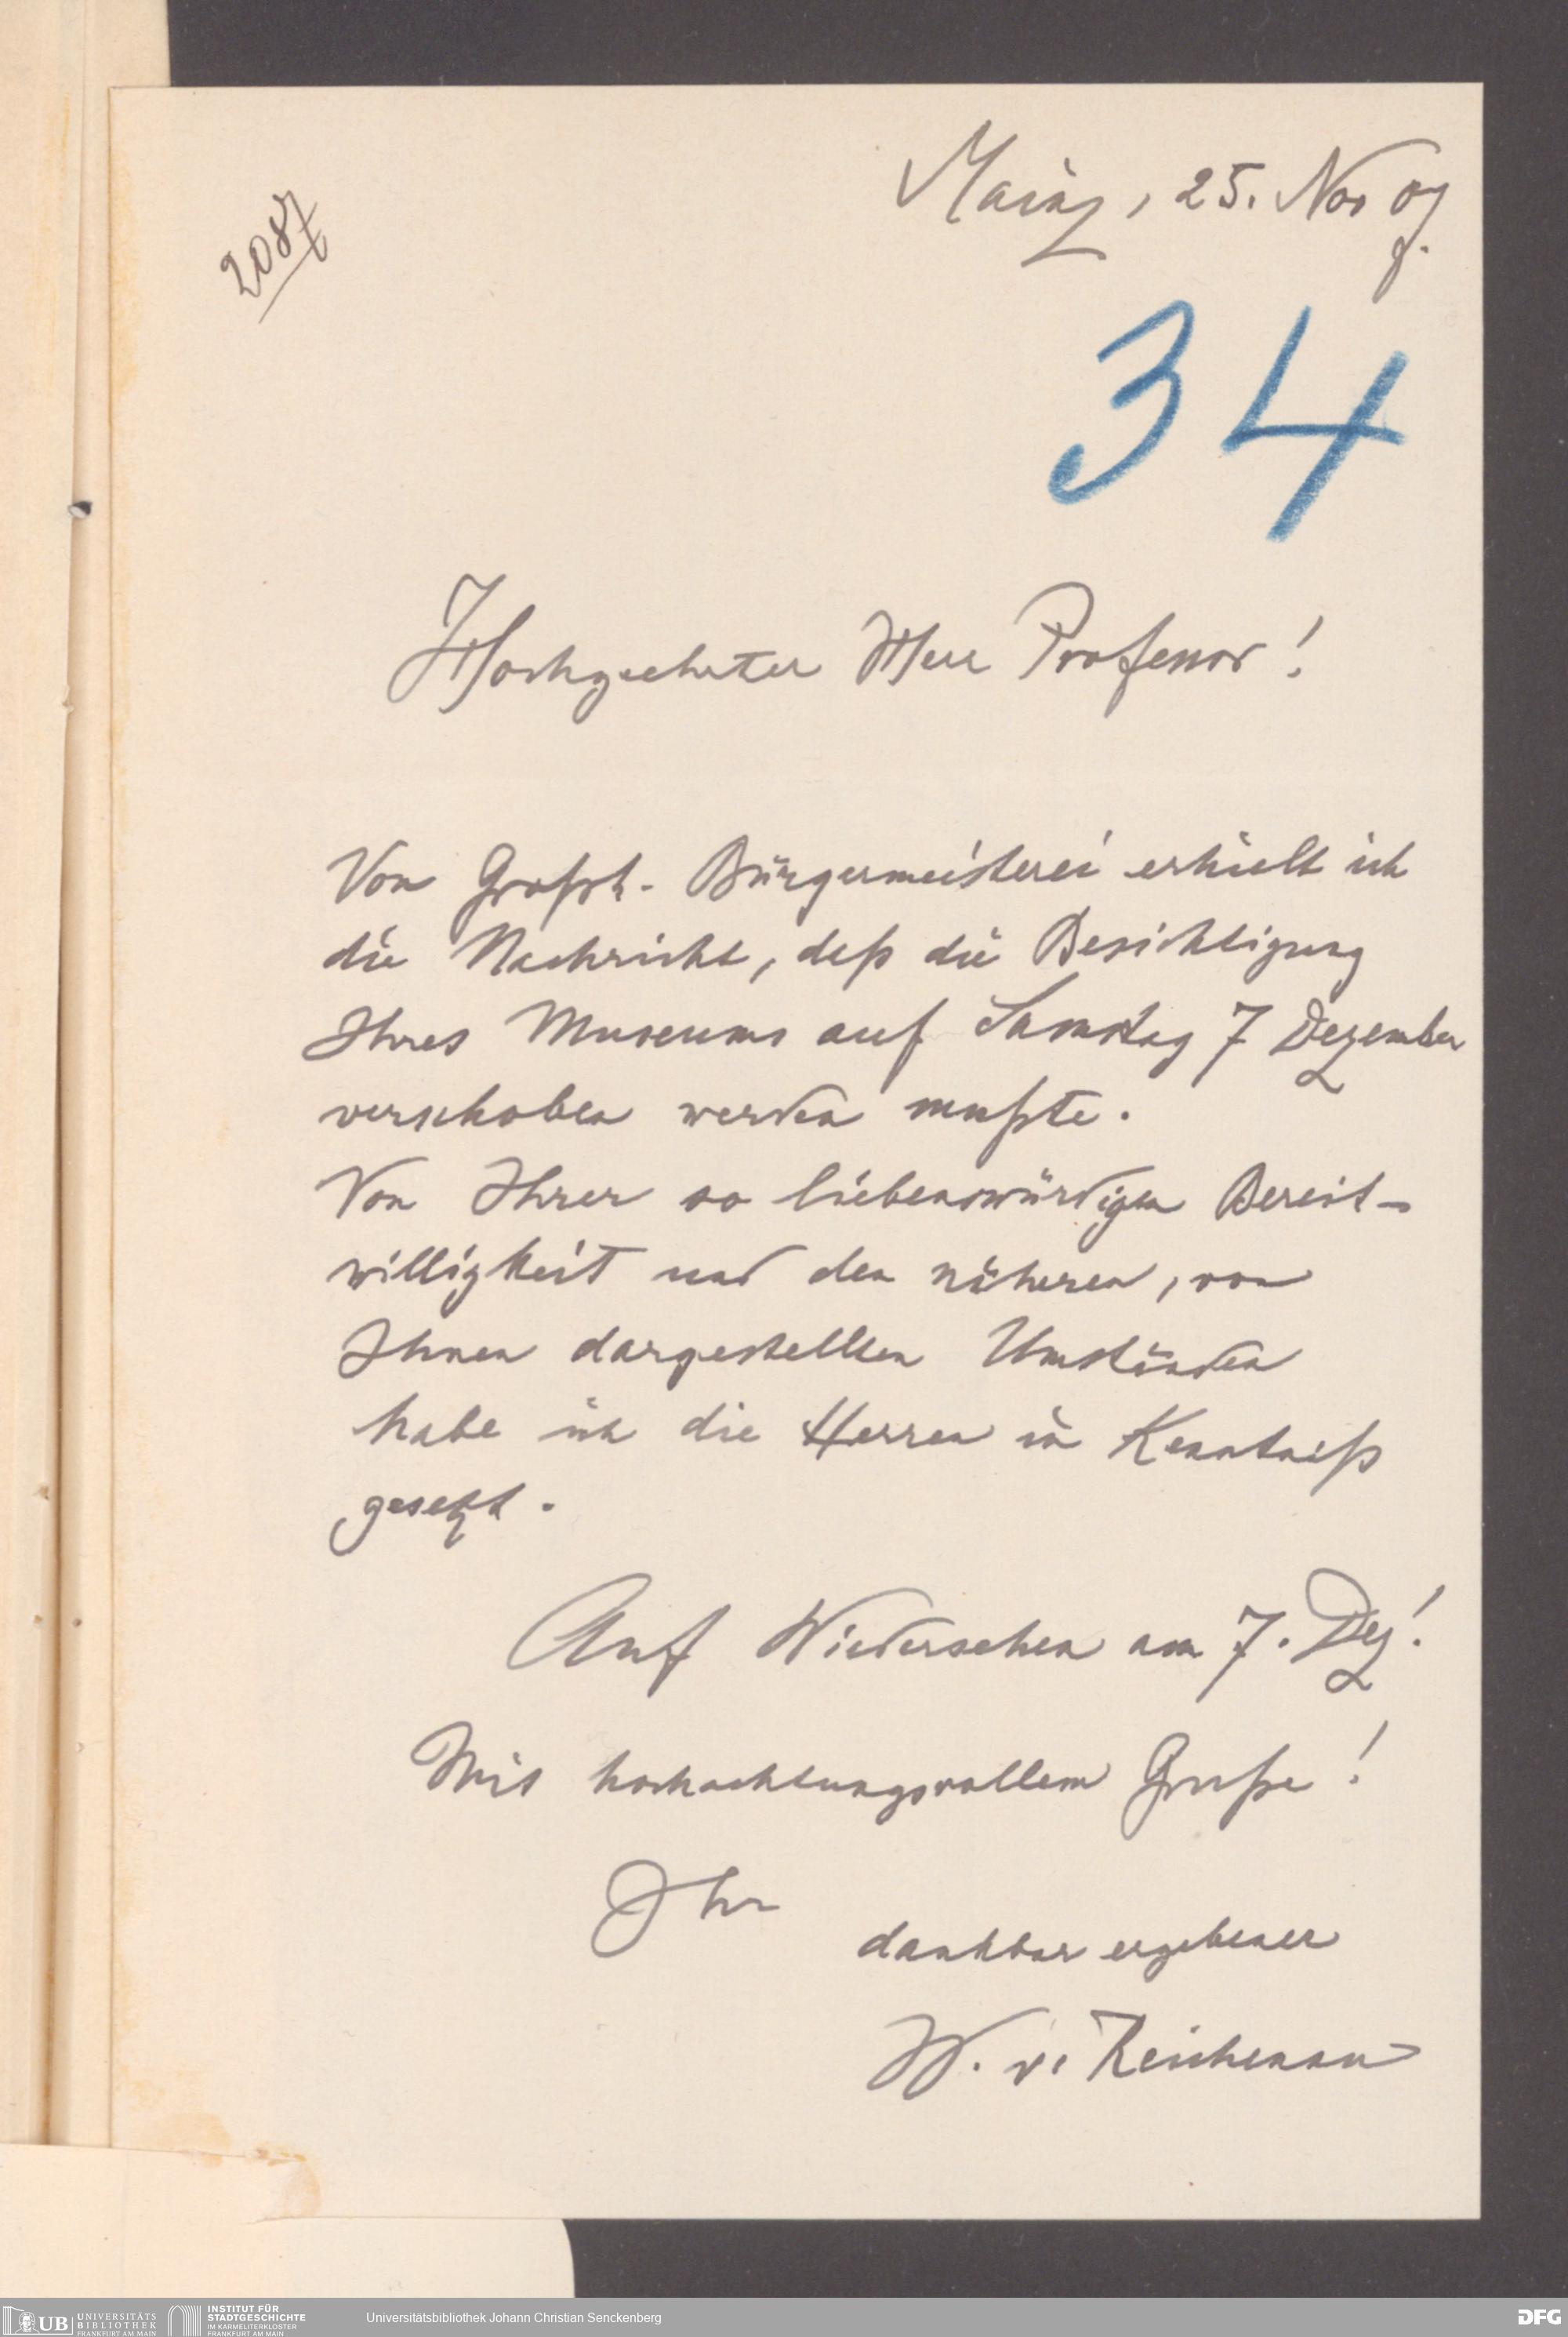 2087
Mainz, 25. Nov 07.
34
Hochgeehrter Herr Professor!
Von Großh. Bürgermeisterei erhielt ich
die Nachricht, daß die Besichtigung
Ihres Museums auf Samstag 7 Dezember
verschoben werden mußte.
Von Ihrer so liebenswürdigen Bereit-
willigkeit und den näheren, von
Ihnen dargestellten Umständen
habe ich die Herren in Kenntniß
gesetzt.
Auf Wiedersehen am 7. Dez!
Mit hochachtungsvollem Gruße!
Ihr
dankbar ergebener
W. v. Reichenau
UB UNIVERSITÄTS
BIBLIOTHEK
FRANKFURT AM MAIN
INSTITUT FÜR
STADTGESCHICHTE
IM KARMELITERKLOSTER
FRANKFURT AM MAIN
Universitätsbibliothek Johann Christian Senckenberg
DFG